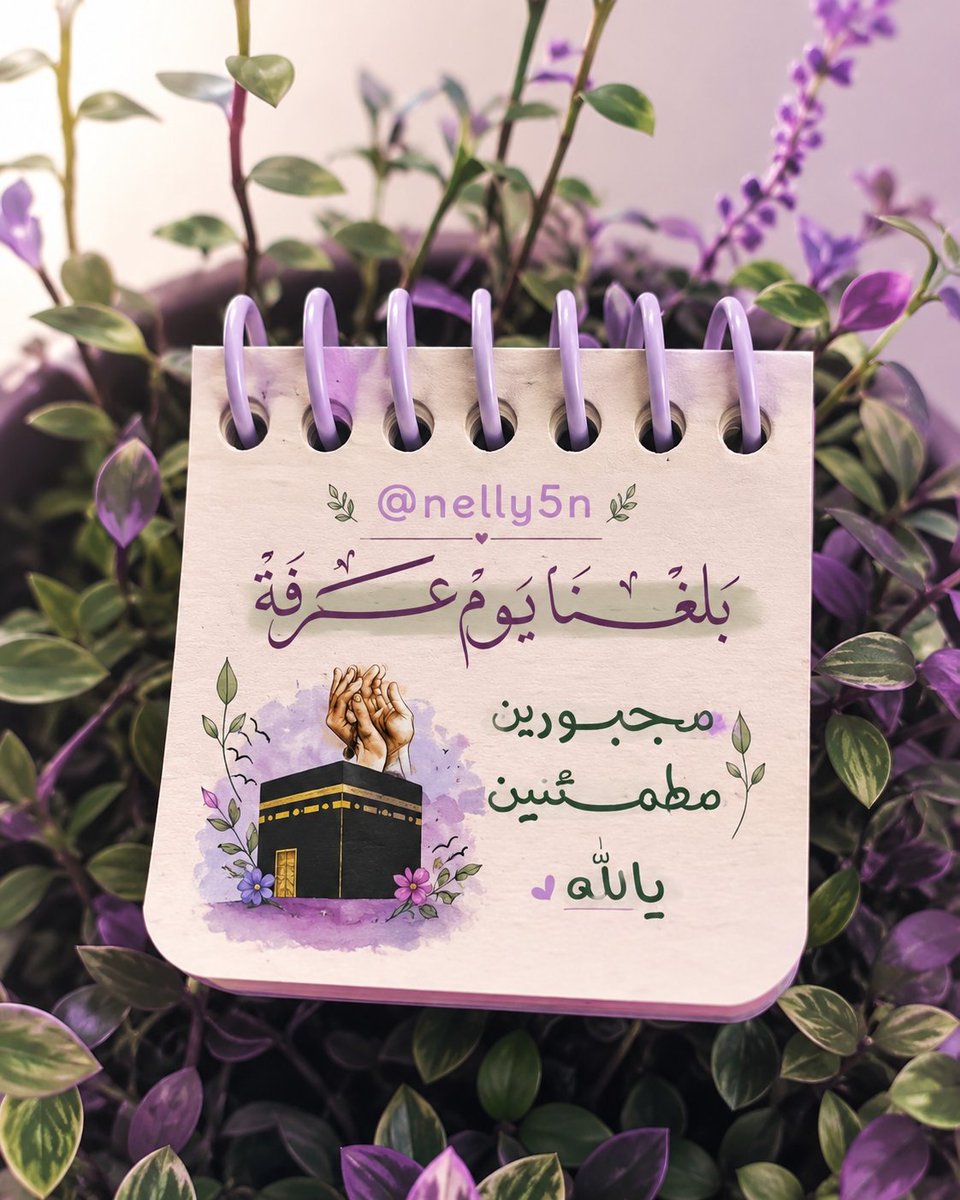 @nelly5n
بَلغنَا يَومْ عرفَةْ
مجبورين
مطمئنين
يالله